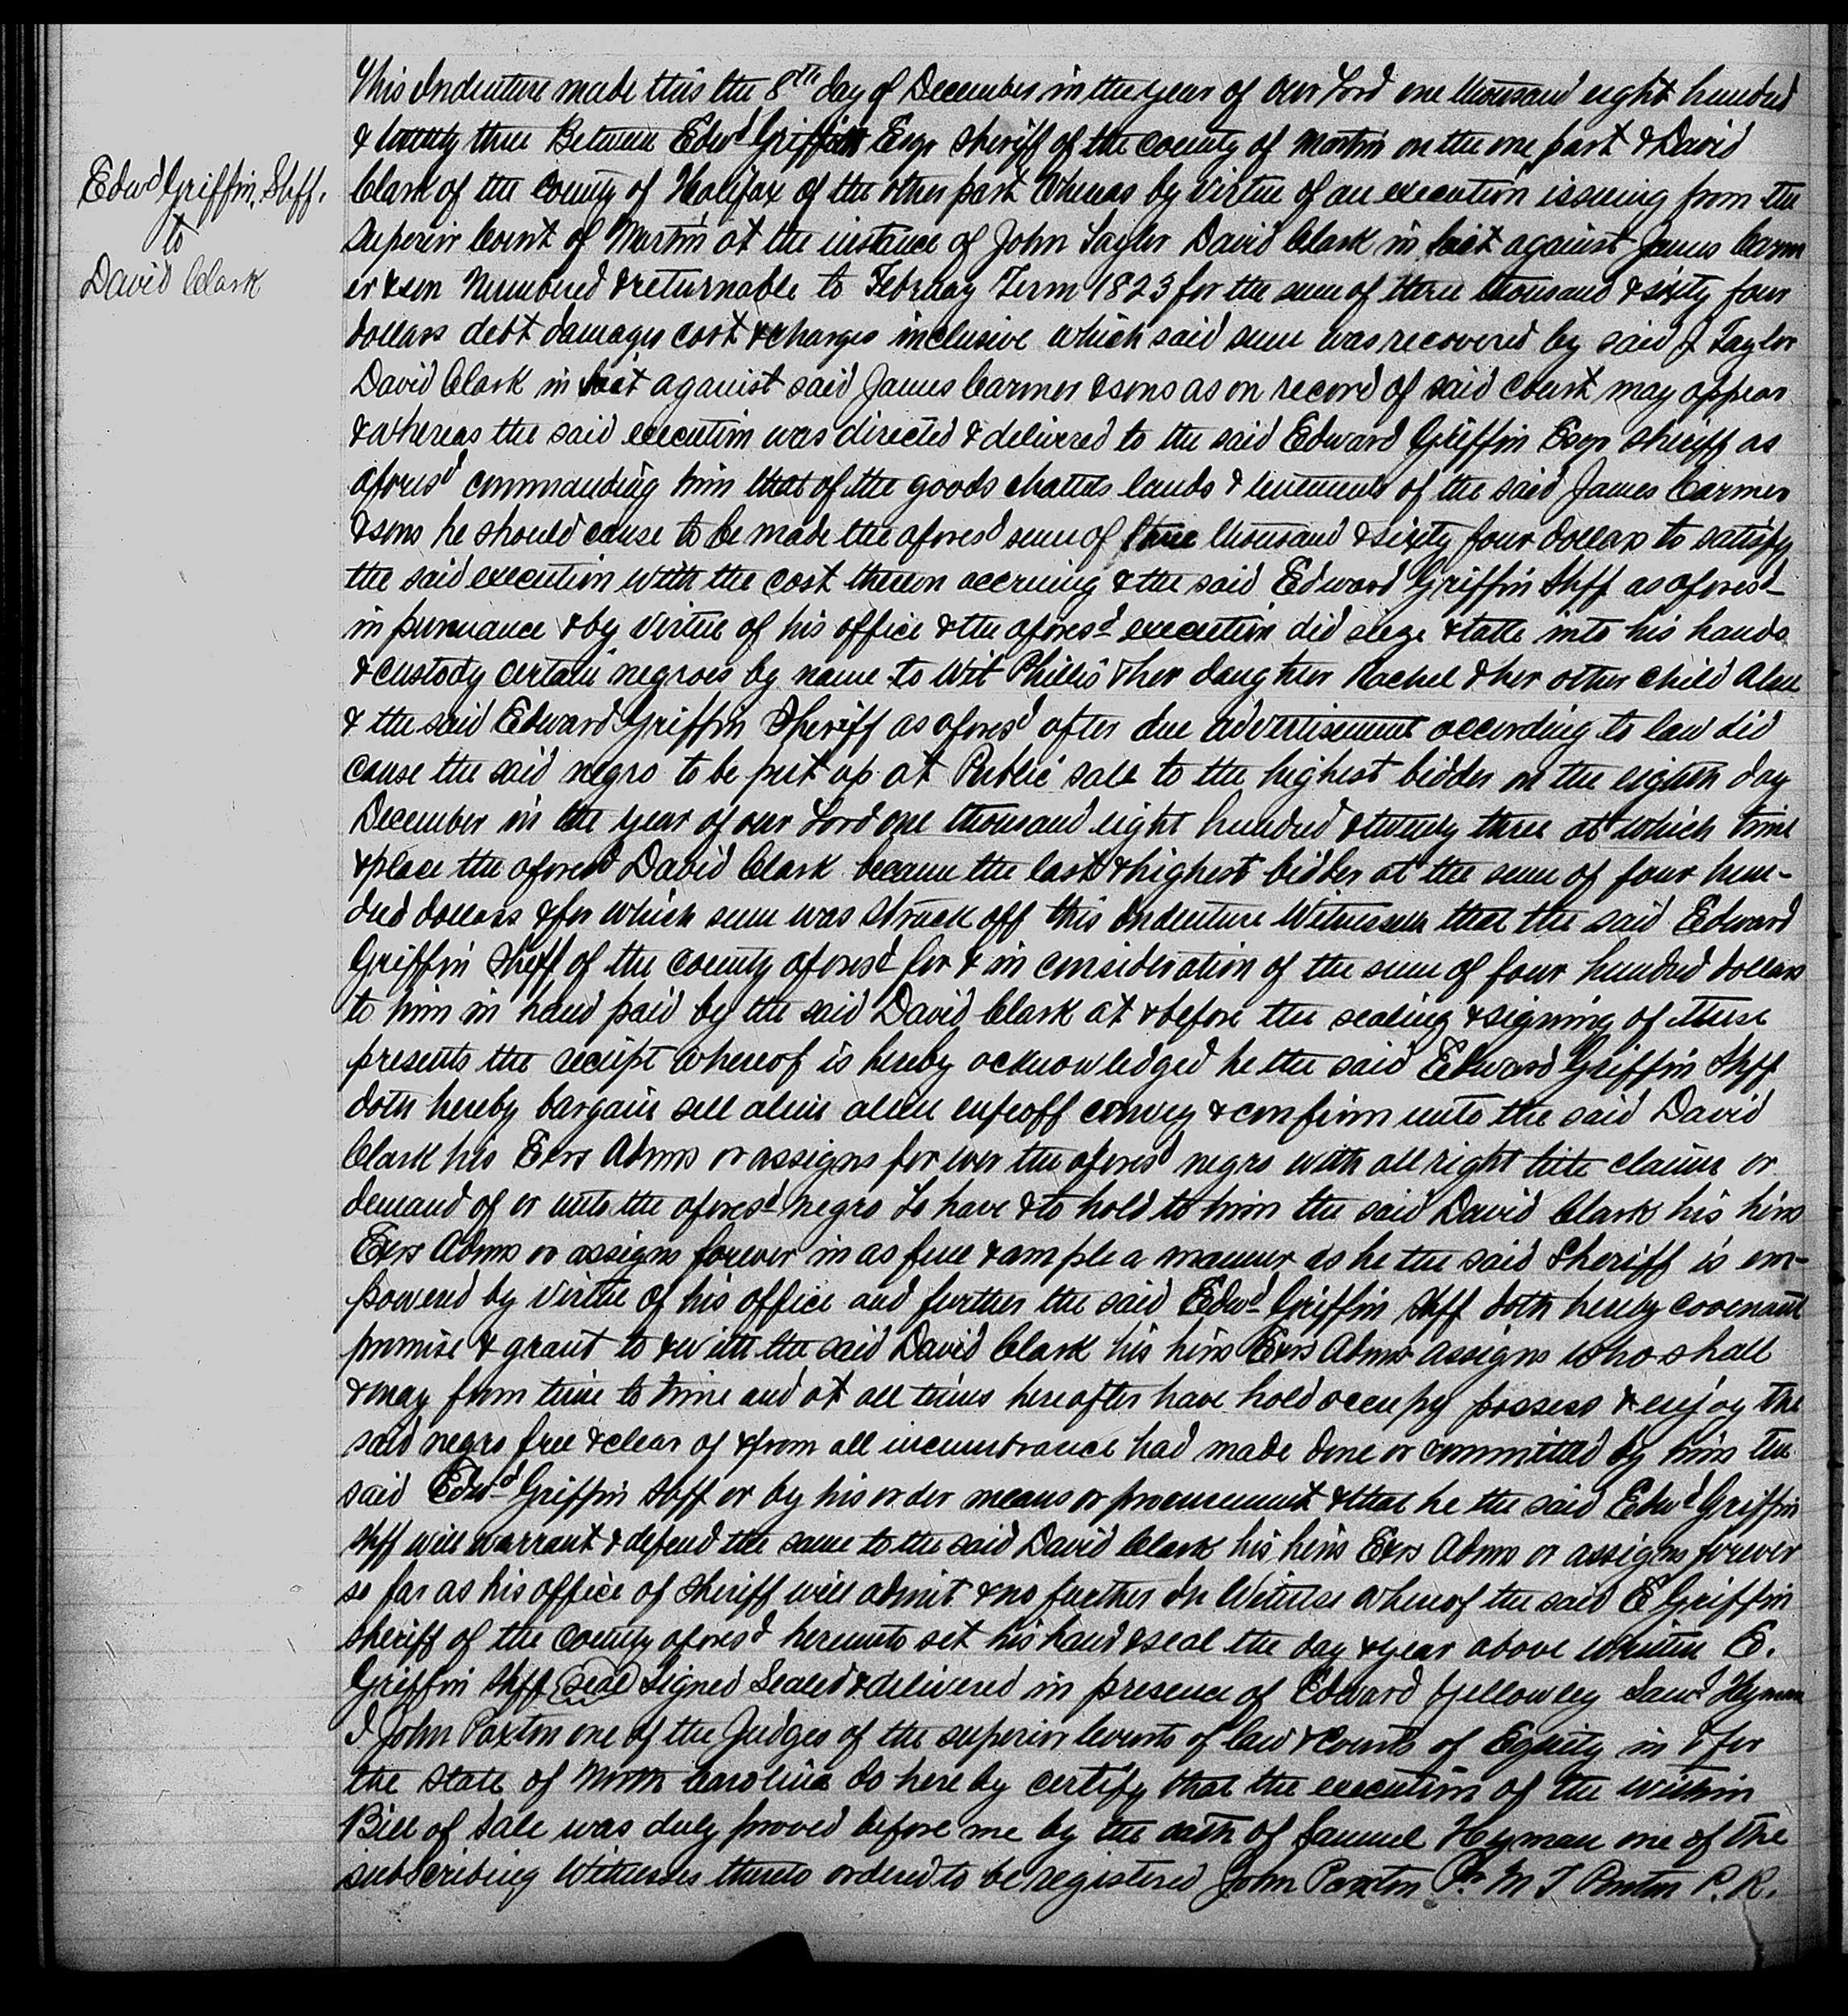 Edwd Griffin, Shff.
to
David Clark
This Indenture made this the 8th day of December in the year of our Lord one thousand eight hundred
& twenty three Between Edwd Griffin Esqr Sheriff of the county of Martin on the one part & David
Clark of the county of Halifax of the other part Whereas by virtue of an execution issuing from the
Superior Court of Martin at the instance of John Taylor David Clark in fact against James Carm
er & son Numbered & returnable to Februay Term 1823 for the sum of three thousand & sixty four
dollars debt damages cost & charges inclusive which said sum was recovered by said J Taylor
David Clark in fact against said James Carmer & sons as on record of said court may appear
& whereas the said execution was directed & delivered to the said Edward Griffin Esqr sheriff as
aforesd commanding him that of the goods chattels lands & tenements of the said James Carmer
& sons he should cause to be made the aforesd sum of three thousand & sixty four dollars to satisfy
the said execution with the cost thereon accruing & the said Edward Griffin Shff as aforesd
in pursuance & by virtue of his office & the aforesd execution did seize & take into his hands
& custody certain negroes by name to wit Phillis & her daughter Rachel & her other child
& the said Edward Griffin Sheriff as aforesd after due advertisement according to law did
cause the said negro to be put up at Public sale to the highest bidder on the eighth day
December in the year of our Lord one thousand eight hundred & twenty three at which time
& place the aforesd David Clark became the last & highest bidder at the sum of four hun-
dred dollars & for which sum was struck off this Indenture Witnesseth that the said Edward
Griffin Sheff of the county aforesd for & in consideration of the sum of four hundred dollars
to him in hand paid by the said David Clark at & before the sealing & signing of these
presents the receipt whereof is hereby acknowledged he the said Edward Griffin Shff
doth hereby bargain sell alein enfeoff convey & confirm unto the said David
Clark his Exrs Admrs or assigns for ever the aforesd negro with all right title claim or
demand of or unto the aforesd negro To have & to hold to him the said David Clark his heirs
Exrs Admrs or assigns forever in as full & ample a manner as he the said Sheriff is em-
powered by virtue of his office and further the said Edwd Griffin Shff doth hereby covenant
promise & grant to & with the said David Clark his heirs Exrs Admrs assigns who shall
& may from time to time and at all times hereafter have hold occupy possess & enjoy the
said negro free & clear of & from all incumbrance had made done or committed by him the
said Edwd Griffin Shff or by his order means or procurement & that he the said Edwd Griffin
Shff will warrant & defend the same to the said David Clark his heirs Exrs Admrs or assigns forever
so far as his office of sheriff will admit & no further In Witness whereof the said E Griffin
sheriff of the county aforesd hereunto set his hand & seal the day & year above written E.
Griffin Shff seal Signed Sealed & delivered in presence of Edward Yellowley Saml Hyman
I John Paxton one of the Judges of the superior Courts of law & Courts of Equity in & for
the State of North Carolina do hereby certify that the execution of the within
Bill of Sale was duly proved before me by the oath of Samuel Hyman one of the
subscribing Witnesses thereto ordered to be registered John Paxton Pr M T Ponton P. R.